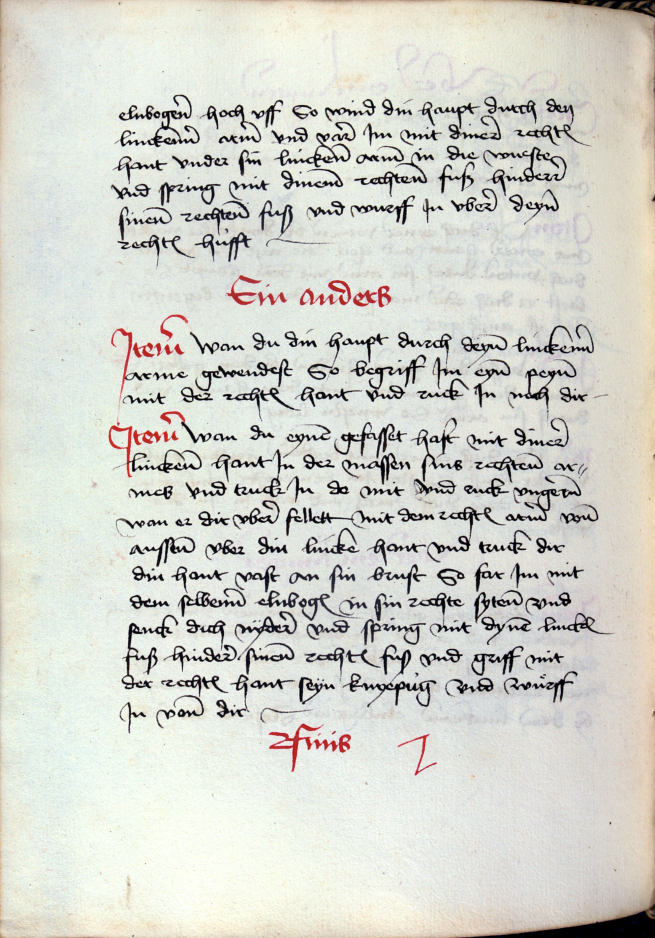 elnbogen̄ hoch vff So wind din haupt durch den
linckenn̄ arm̄ vnd var̄ Im mit diner̄ rechtē
hant vnder sin lincken̄ arm̄ in die wueste
vnd spring mit dinem̄ rechten̄ fuß hinderr̄
sinen̄ rechten̄ fuß vnd wurff In vber̄ deyn̄
rechtē hufft
Ein anders
Item̄ Wan du din haupt durch deyn̄ linckenn̄
arme gewendest So begriff Im eyn̄ peyn̄
mit der rechtē hant vnd ruck In noch dir
Item̄ Wan du eynē gefasset hast mit diner̄
lincken̄ hant In der massen sins rechten̄ ar„
mes vnd truck In do mit vnd ruck vngern̄
wan er dir vber̄ fellett mit dem rechtē arm̄ von̄
aussen̄ vber din lincke hant vnd truck dir
din hant vast an sin brust So far Im mit
dem selbenn̄ elnbogē in sin rechte syten̄ vnd
senck dich nÿder̄ vnd spring mit dynē linckē
fuß hinder̄ sinen̄ rechtē fuß vnd griff mit
der rechtē hant seyn knyepüg vnd wurff
In von̄ dir
Finis